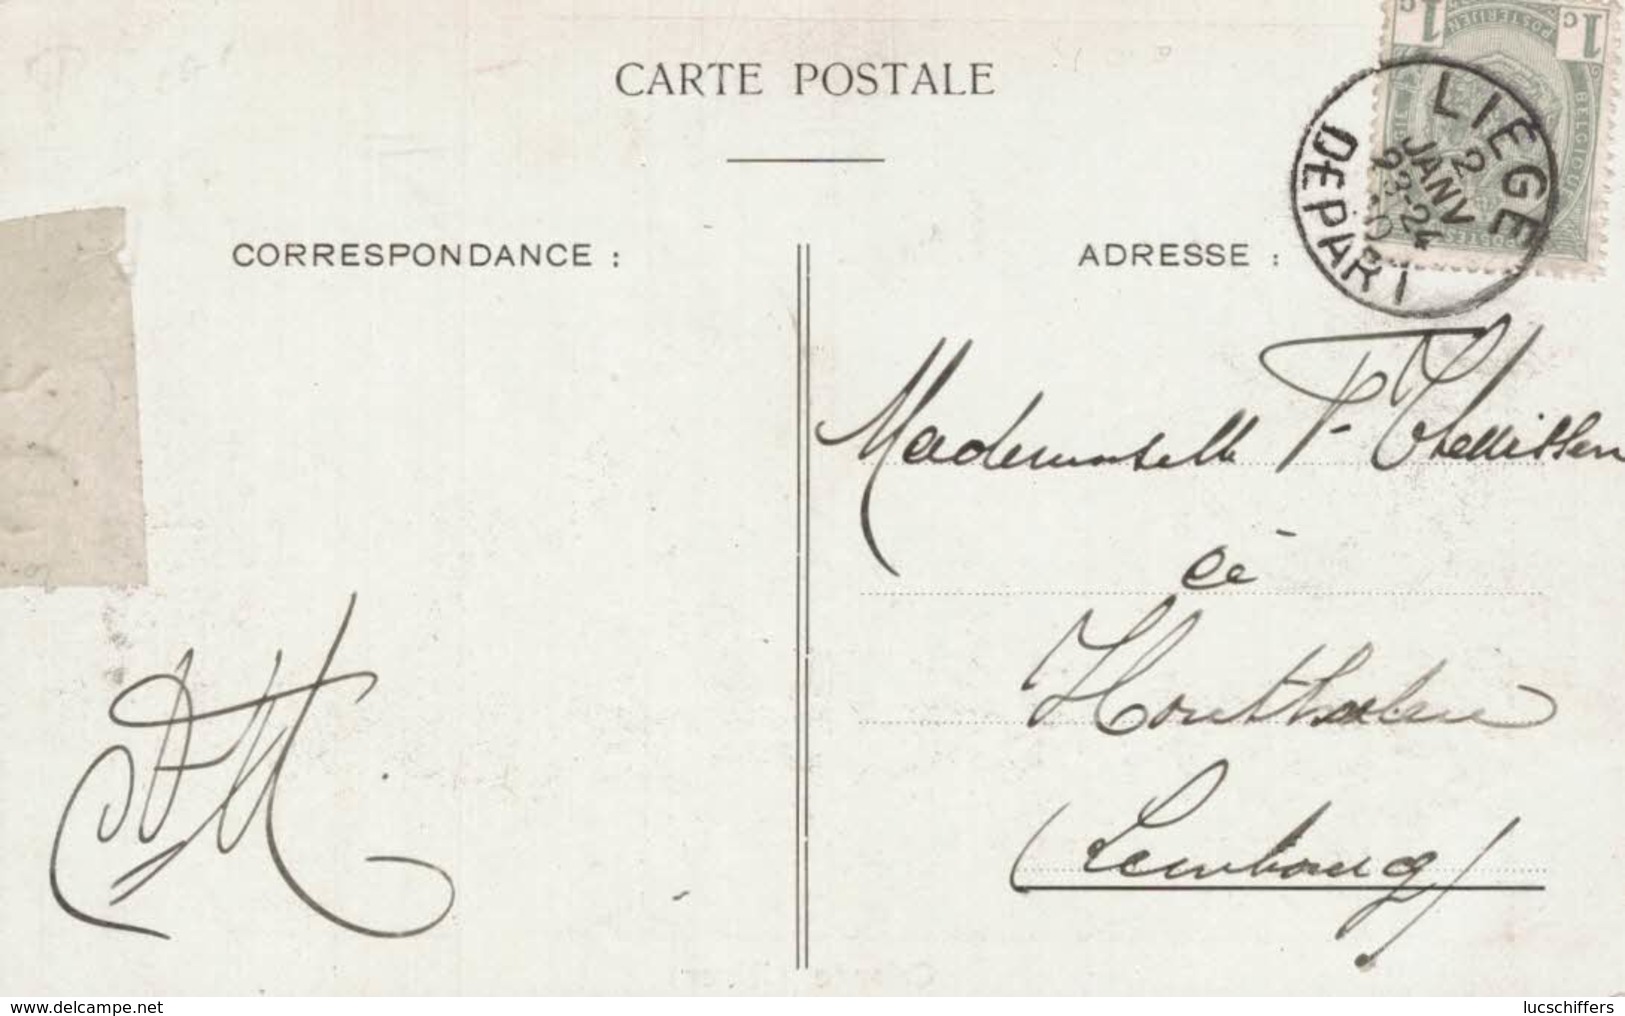 CARTE POSTALE
1c 1c
POSTERIJEN
BELGIQUE
POSTES
LIÉGE
2
JANV
23-24
DEPART
CORRESPONDANCE :
ADRESSE :
Mademoiselle
à
Houthalen
(Limbourg)
www.delcampe.net
lucschiffers